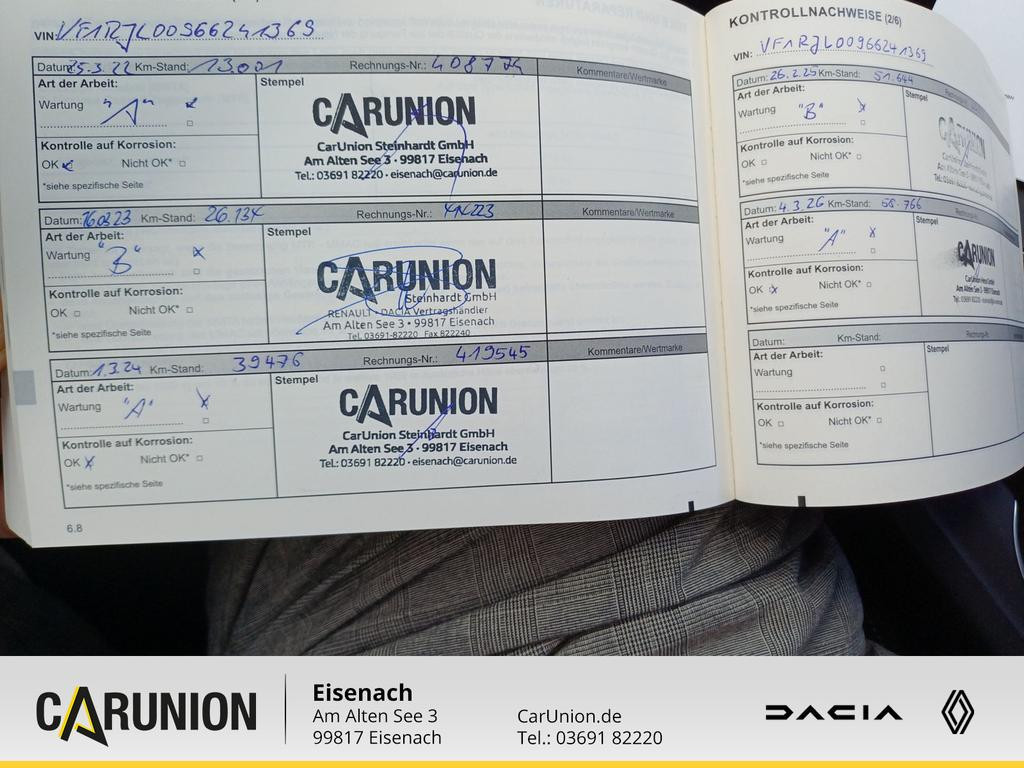 VIN: VF1RJL00966241369
Datum: 25.3.22 Km-Stand: 13.001 Rechnungs-Nr.: Kommentare/Wertmarke
Art der Arbeit:
Wartung "A"
Kontrolle auf Korrosion:
OK Nicht OK*
*siehe spezifische Seite
Stempel
CARUNION
CarUnion Steinhardt GmbH
Am Alten See 3 · 99817 Eisenach
Tel.: 03691 82220 · eisenach@carunion.de
Datum: 16.03.23 Km-Stand: Rechnungs-Nr.: Kommentare/Wertmarke
Art der Arbeit:
Wartung "B"
Kontrolle auf Korrosion:
OK Nicht OK*
*siehe spezifische Seite
Stempel
CARUNION
Steinhardt GmbH
RENAULT · DACIA Vertragshändler
Am Alten See 3 · 99817 Eisenach
Tel. 03691-82220 Fax 822240
Datum: 1.3.24 Km-Stand: 39476 Rechnungs-Nr.: 419545 Kommentare/Wertmarke
Art der Arbeit:
Wartung "A"
Kontrolle auf Korrosion:
OK Nicht OK*
*siehe spezifische Seite
Stempel
CARUNION
CarUnion Steinhardt GmbH
Am Alten See 3 · 99817 Eisenach
Tel.: 03691 82220 · eisenach@carunion.de
6.8
KONTROLLNACHWEISE (2/6)
VIN: VF1RJL00966241369
Datum: 26.2.25 Km-Stand: 51.644
Art der Arbeit:
Wartung "B"
Kontrolle auf Korrosion:
OK Nicht OK*
*siehe spezifische Seite
Stempel
CARUNION
Datum: 4.3.26 Km-Stand: 58.766
Art der Arbeit:
Wartung "A"
Kontrolle auf Korrosion:
OK Nicht OK*
*siehe spezifische Seite
Stempel
CARUNION
Datum: Km-Stand: Rechnungs-Nr.
Art der Arbeit:
Wartung
Kontrolle auf Korrosion:
OK Nicht OK*
*siehe spezifische Seite
Stempel
CARUNION
Eisenach
Am Alten See 3
99817 Eisenach
CarUnion.de
Tel.: 03691 82220
DACIA